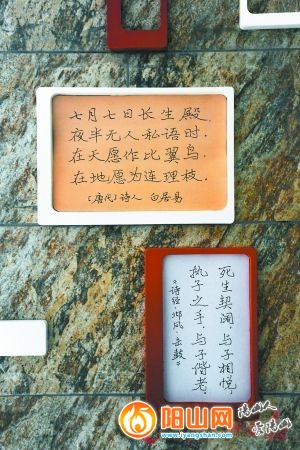 七月七日长生殿，
夜半无人私语时，
在天愿作比翼鸟，
在地愿为连理枝。
[唐代]诗人 白居易
死生契阔，与子相悦，
执子之手，与子偕老，
《诗经·邶风·击鼓》
阳山网
www.yangshan.com